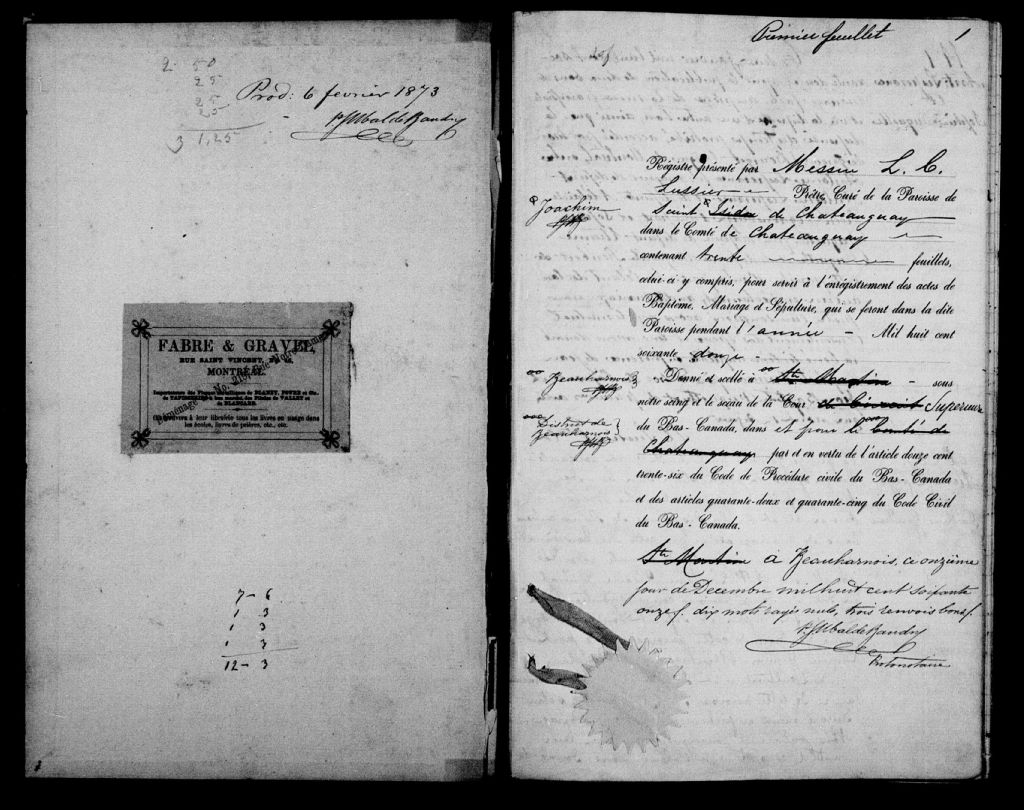 2 50
25
25
25
3 1,25
Prod: 6 fevrier 1873
FABRE & GRAVEL,
RUE SAINT VINCENT,
MONTRÉAL.
Importateurs des Plumes métalliques de BLANZY, POURE et Cie.
de TAPISSERIES à bon marché, des Pilules de VALLET et
de BLANCARD.
On trouvera à leur librairie tous les livres en usage dans
les écoles, livres de prières, etc., etc.
7 - 6
1 3
1 3
1 3
12 - 3
Premier feuillet 1
Régistre présenté par Messire L. C.
Lussier Prêtre Curé de la Paroisse de
Joachim
Saint Isidore de Chateauguay
dans le Comté de Chateauguay
contenant trente feuillets,
celui-ci y compris, pour servir à l'enrégistrement des actes de
Baptême, Mariage et Sépulture, qui se feront dans la dite
Paroisse pendant l'année - Mil huit cent
soixante douze -
Beauharnois
Donné et scellé à Ste Martine - sous
notre seing et le sceau de la Cour de Circuit Supérieure
District de
Beauharnois
du Bas-Canada, dans et pour le Comté de
Chateauguay par et en vertu de l'article douze cent
trente-six du Code de Procédure civile du Bas-Canada
et des articles quarante-deux et quarante-cinq du Code Civil
du Bas-Canada.
Ste Martine à Beauharnois, ce onzième
jour de Decembre mil huit cent soixante
onze. dix mots rayés nuls, trois renvois bons.
Protonotaire